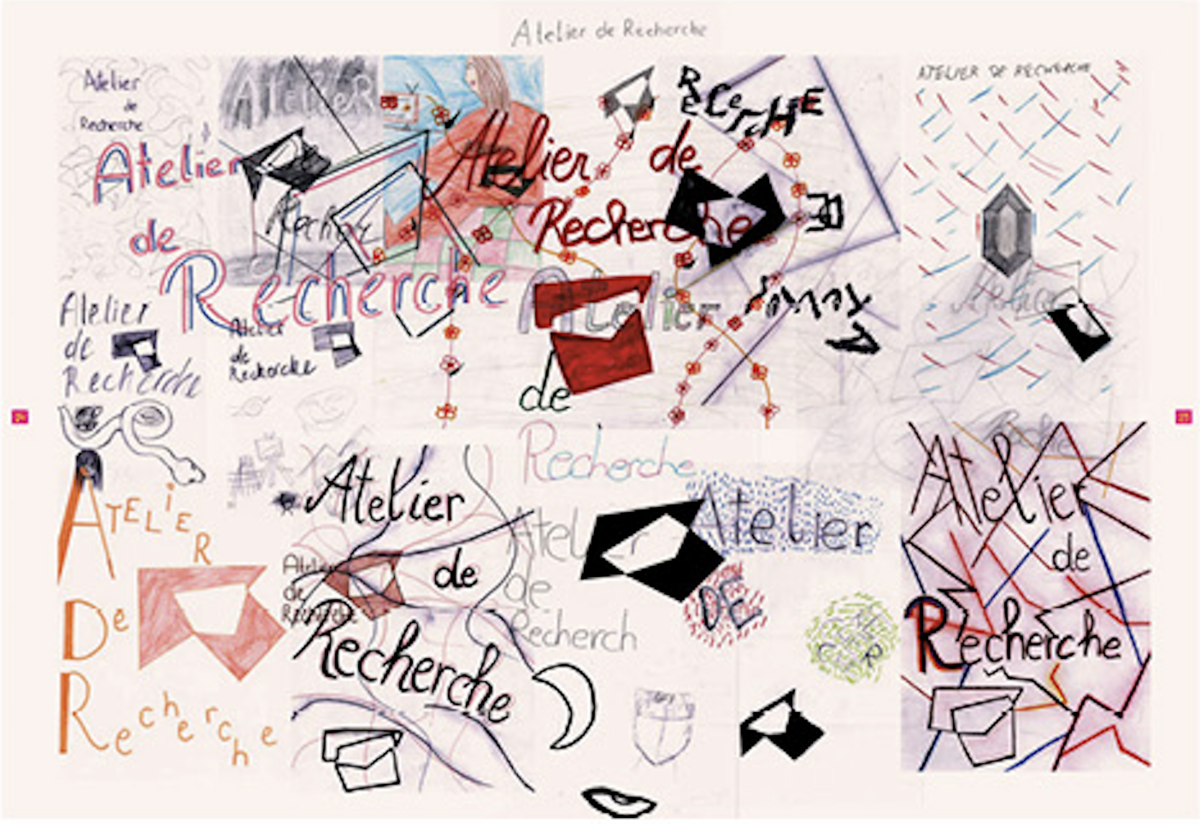 Atelier de Recherche
Atelier
de
Recherche
ATELIER
Atelier
de
Recherche
Atelier de
Recherche
ReCerCHE
ATELIER DE RECHERCHE
Atelier
de
Recherche
Atelier
de
Recherche
Atelier
de
Recherche
ATELiER
De
Recherche
Atelier
de
Recherche
Atelier
de
Recherche
Atelier
de
Recherch
Atelier
DE
Atelier
de
Recherche